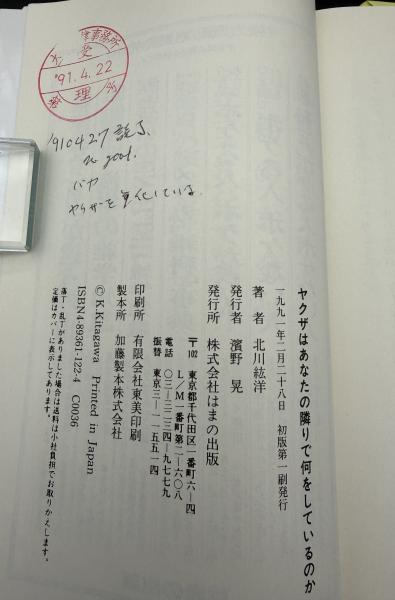 事務所
受
'91.4.22
理
'910427 読了
no good.
バカ
ヤクザを美化している。
ヤクザはあなたの隣りで何をしているのか
一九九一年二月二十八日 初版第一刷発行
著者 北川紘洋
発行者 濱野 晃
発行所 株式会社はまの出版
〒102 東京都千代田区一番町六―四
L/M一番町第二―六〇八
電話 〇三―三二三四―九七七九
振替 東京三―一一五五一四
印刷所 有限会社東美印刷
製本所 加藤製本株式会社
© K.Kitagawa Printed in Japan
ISBN4-89361-122-4 C0036
落丁・乱丁がありました場合は送料は小社負担でお取りかえします。
定価はカバーに表示してあります。